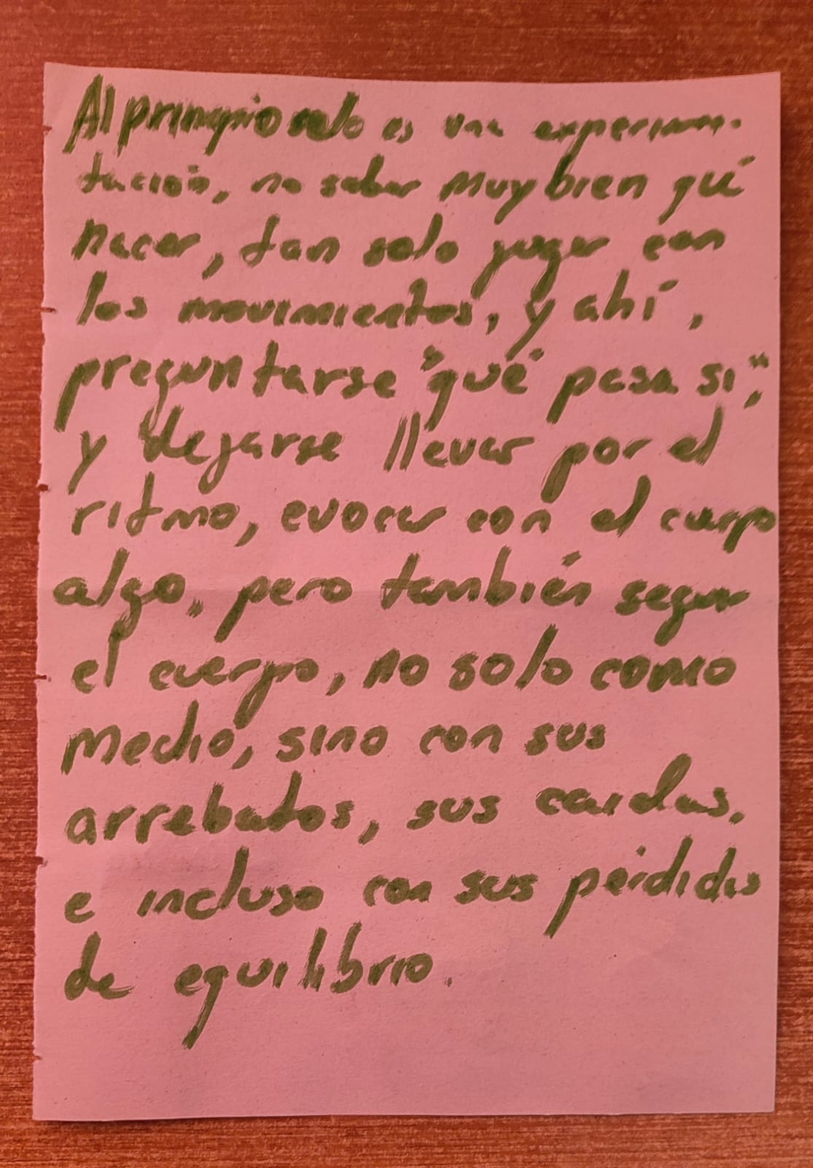 Al principio solo es una experimen-
tación, no saber muy bien qué
hacer, tan solo jugar con
los movimientos, y ahí,
preguntarse "qué pasa si",
y dejarse llevar por el
ritmo, evocar con el cuerpo
algo, pero también seguir
el cuerpo, no solo como
medio, sino con sus
arrebatos, sus caídas,
e incluso con sus pérdidas
de equilibrio.